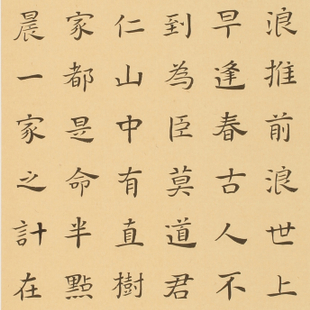 浪推前浪世上
早逢春古人不
到為臣莫道君
仁山中有直樹
家都是命半點
晨一家之計在